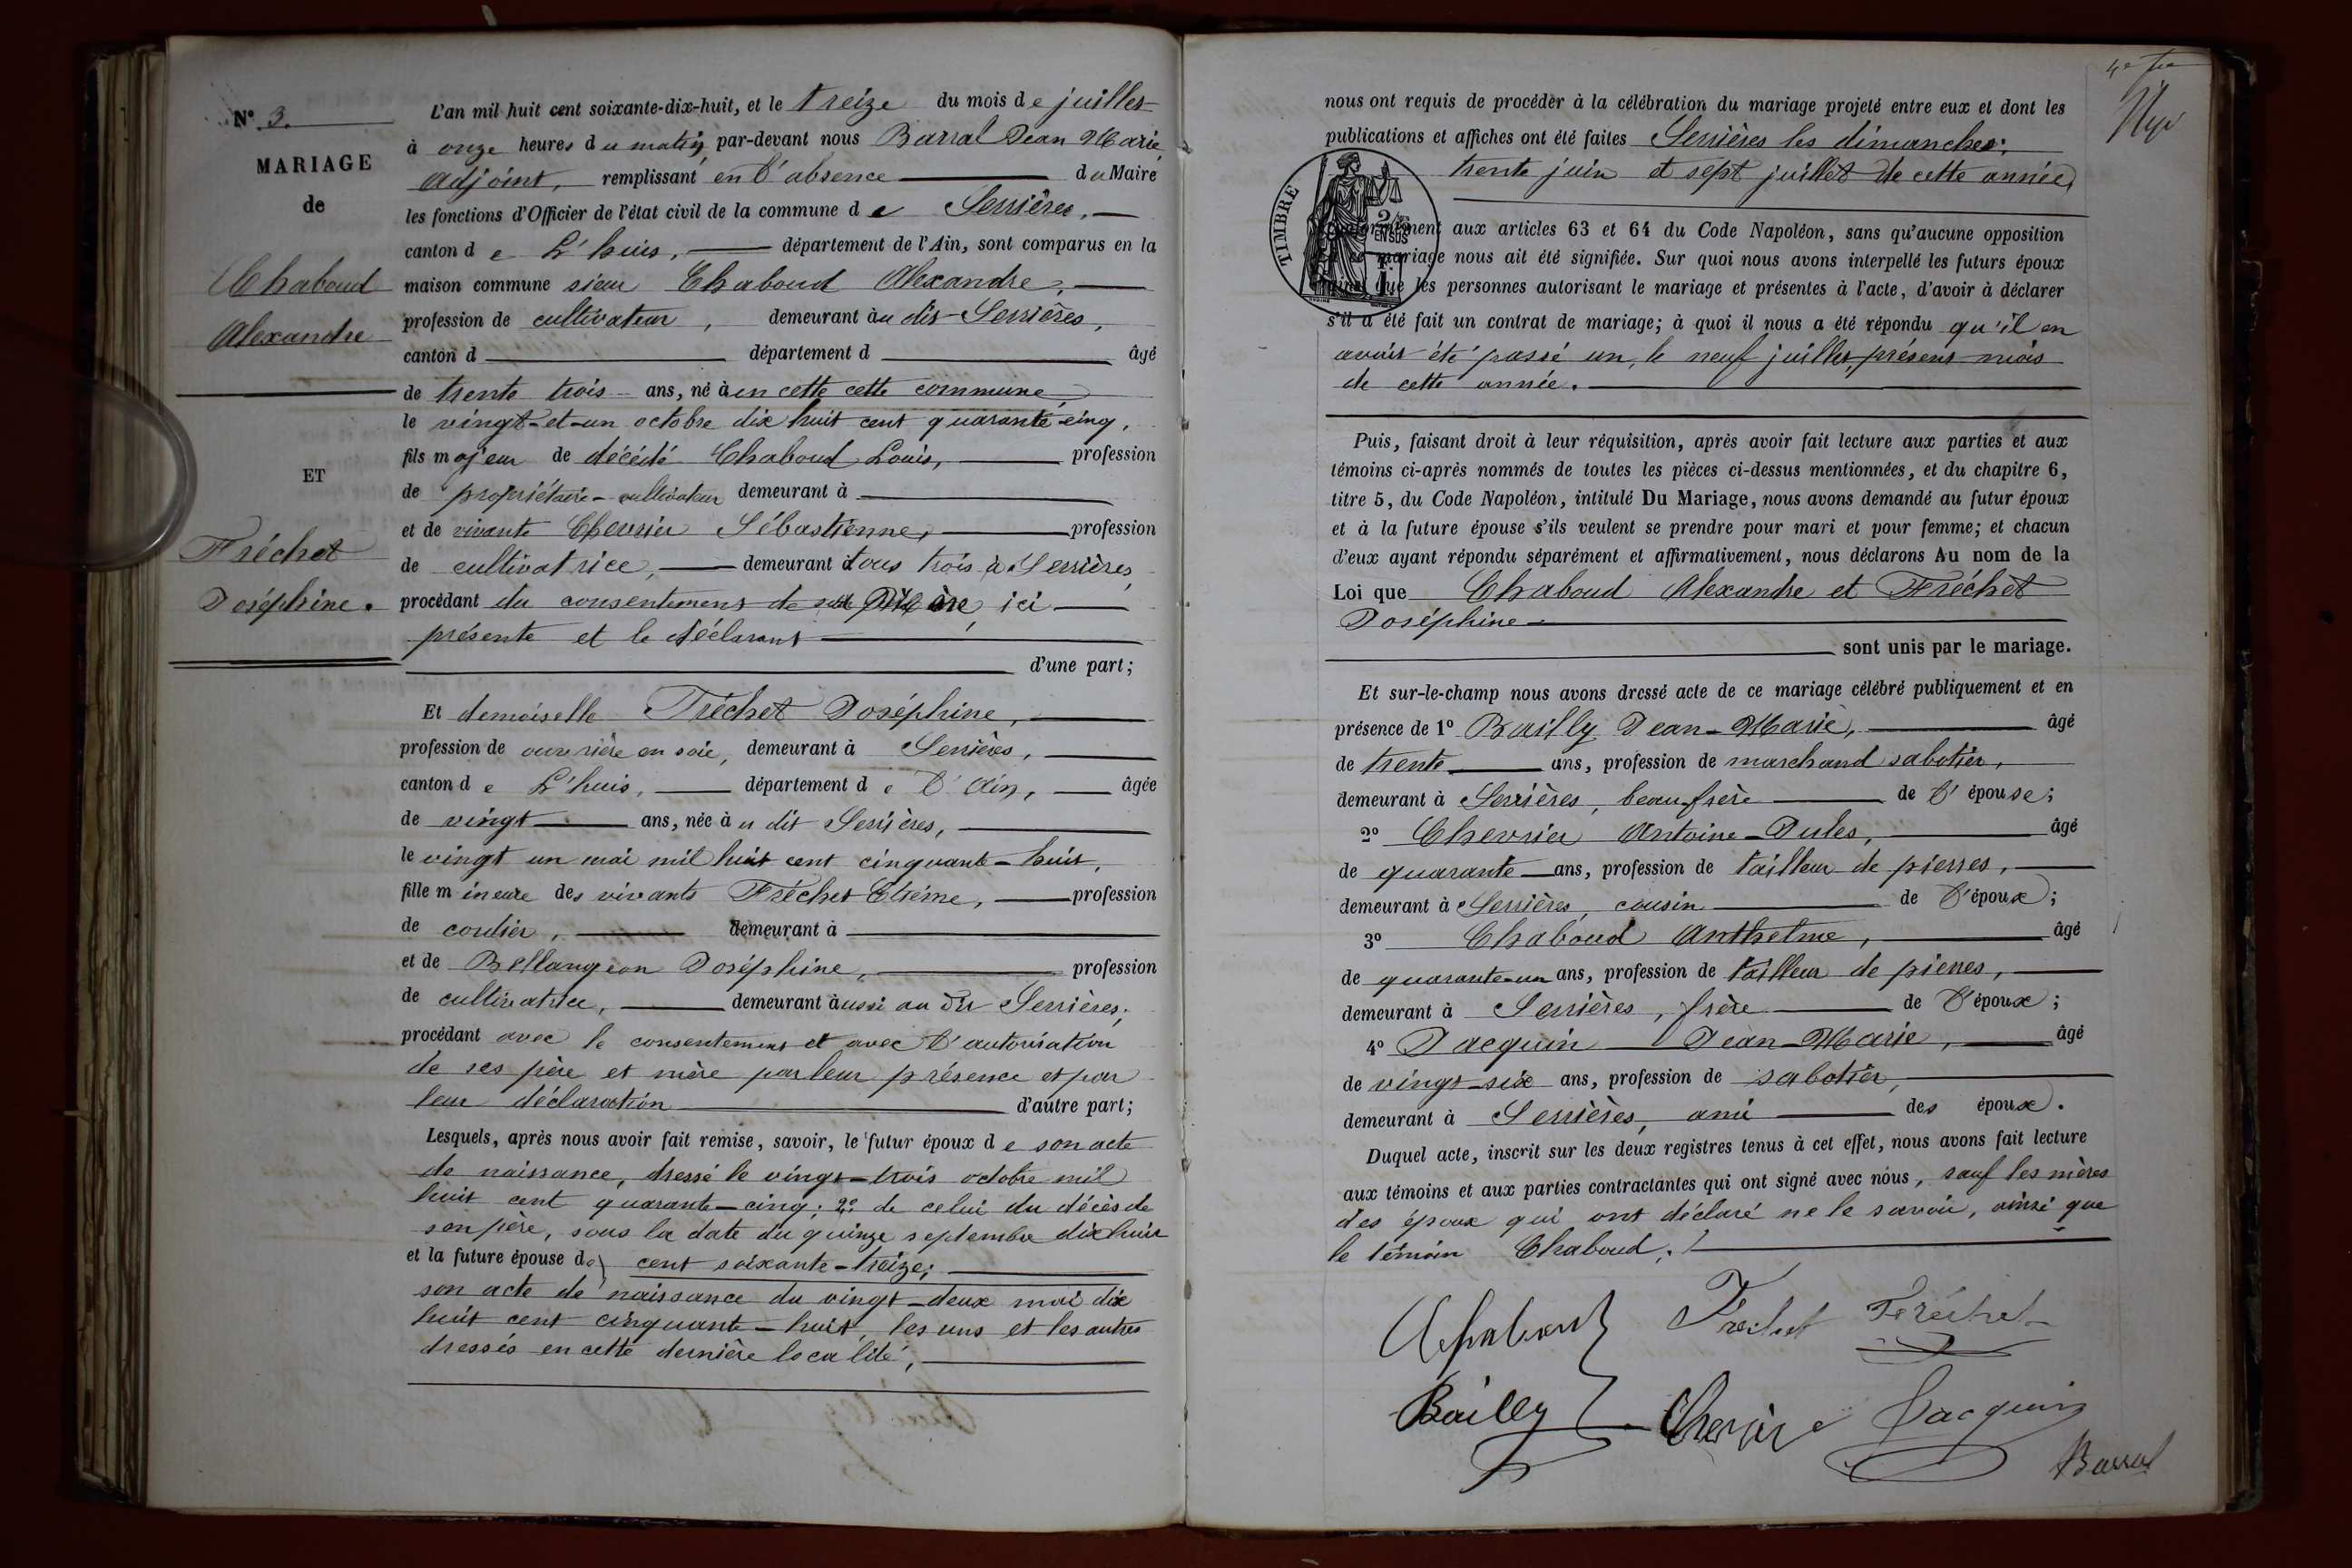 N° 3.
MARIAGE
de
Chaboud
Alexandre
ET
Fréchet
Joséphine.
L'an mil huit cent soixante-dix-huit, et le treize du mois de juillet
à onze heures du matin, par-devant nous Barral Jean Marie,
adjoint, remplissant en l'absence du Maire
les fonctions d'Officier de l'état civil de la commune de Serrières,
canton de L'huis, département de l'Ain, sont comparus en la
maison commune sieur Chaboud Alexandre,
profession de cultivateur, demeurant au dit Serrières,
canton d département d âgé
de trente trois ans, né à en cette cette commune,
le vingt-et-un octobre dix huit cent quarante-cinq,
fils majeur de décédé Chaboud Louis, profession
de propriétaire-cultivateur demeurant à
et de vivante Chevrier Sébastienne, profession
de cultivatrice, demeurant tous trois à Serrières,
procédant du consentement de sa mère, ici
présente et le déclarant
d'une part;
Et demoiselle Fréchet Joséphine,
profession de ouvrière en soie, demeurant à Serrières,
canton de L'huis, département de l'Ain, âgée
de vingt ans, née au dit Serrières,
le vingt un mai mil huit cent cinquante-huit,
fille mineure des vivants Fréchet Etiéme, profession
de cordier, demeurant à
et de Bellangeon Joséphine, profession
de cultivatrice, demeurant aussi au dit Serrières;
procédant avec le consentement et avec l'autorisation
de ses père et mère par leur présence et par
leur déclaration d'autre part;
Lesquels, après nous avoir fait remise, savoir, le futur époux de son acte
de naissance, dressé le vingt-trois octobre mil
huit cent quarante-cinq; 2° de celui du décès de
son père, sous la date du quinze septembre dix huit
et la future épouse de cent soixante-treize;
son acte de naissance du vingt-deux mai dix
huit cent cinquante-huit, les uns et les autres
dressés en cette dernière localité,
nous ont requis de procéder à la célébration du mariage projeté entre eux et dont les
publications et affiches ont été faites Serrières les dimanches:
trente juin et sept juillet de cette année,
TIMBRE
2/10 EN SUS
aux articles 63 et 64 du Code Napoléon, sans qu'aucune opposition
ce mariage nous ait été signifiée. Sur quoi nous avons interpellé les futurs époux
que les personnes autorisant le mariage et présentes à l'acte, d'avoir à déclarer
s'il a été fait un contrat de mariage; à quoi il nous a été répondu qu'il en
avait été passé un, le neuf juillet, présent mois
de cette année.
Puis, faisant droit à leur réquisition, après avoir fait lecture aux parties et aux
témoins ci-après nommés de toutes les pièces ci-dessus mentionnées, et du chapitre 6,
titre 5, du Code Napoléon, intitulé Du Mariage, nous avons demandé au futur époux
et à la future épouse s'ils veulent se prendre pour mari et pour femme; et chacun
d'eux ayant répondu séparément et affirmativement, nous déclarons Au nom de la
Loi que Chaboud Alexandre et Fréchet
Joséphine
sont unis par le mariage.
Et sur-le-champ nous avons dressé acte de ce mariage célébré publiquement et en
présence de 1° Bailly Jean-Marie, âgé
de trente ans, profession de marchand sabotier,
demeurant à Serrières, beau-frère de l'épouse;
2° Chevrier Antoine-Jules, âgé
de quarante ans, profession de tailleur de pierres,
demeurant à Serrières, cousin de l'époux;
3° Chaboud Anthelme, âgé
de quarante-un ans, profession de tailleur de pierres,
demeurant à Serrières, frère de l'époux;
4° Jacquin Jean-Marie, âgé
de vingt-six ans, profession de sabotier,
demeurant à Serrières, ami des époux.
Duquel acte, inscrit sur les deux registres tenus à cet effet, nous avons fait lecture
aux témoins et aux parties contractantes qui ont signé avec nous, sauf les mères
des époux qui ont déclaré ne le savoir, ainsi que
le témoin Chaboud.
Chaboud Frechet Fréchet
Bailly Chevrier Jacquin
Barral